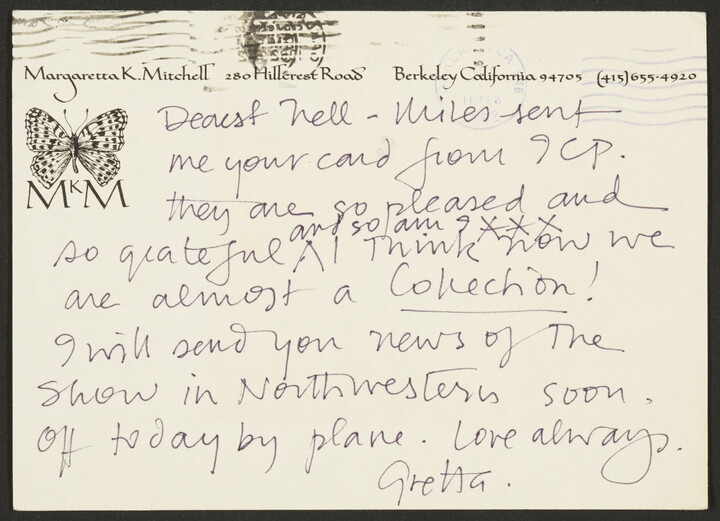 Margaretta K. Mitchell 280 Hillcrest Road Berkeley California 94705 (415) 655-4920
MKM
Dearest Nell - Miles sent
me your card from ICP.
They are so pleased and
and so am I XXX
so grateful ^ I Think now we
are almost a Collection!
I will send you news of The
Show in Northwestern soon.
Off today by plane. Love always.
Gretta.